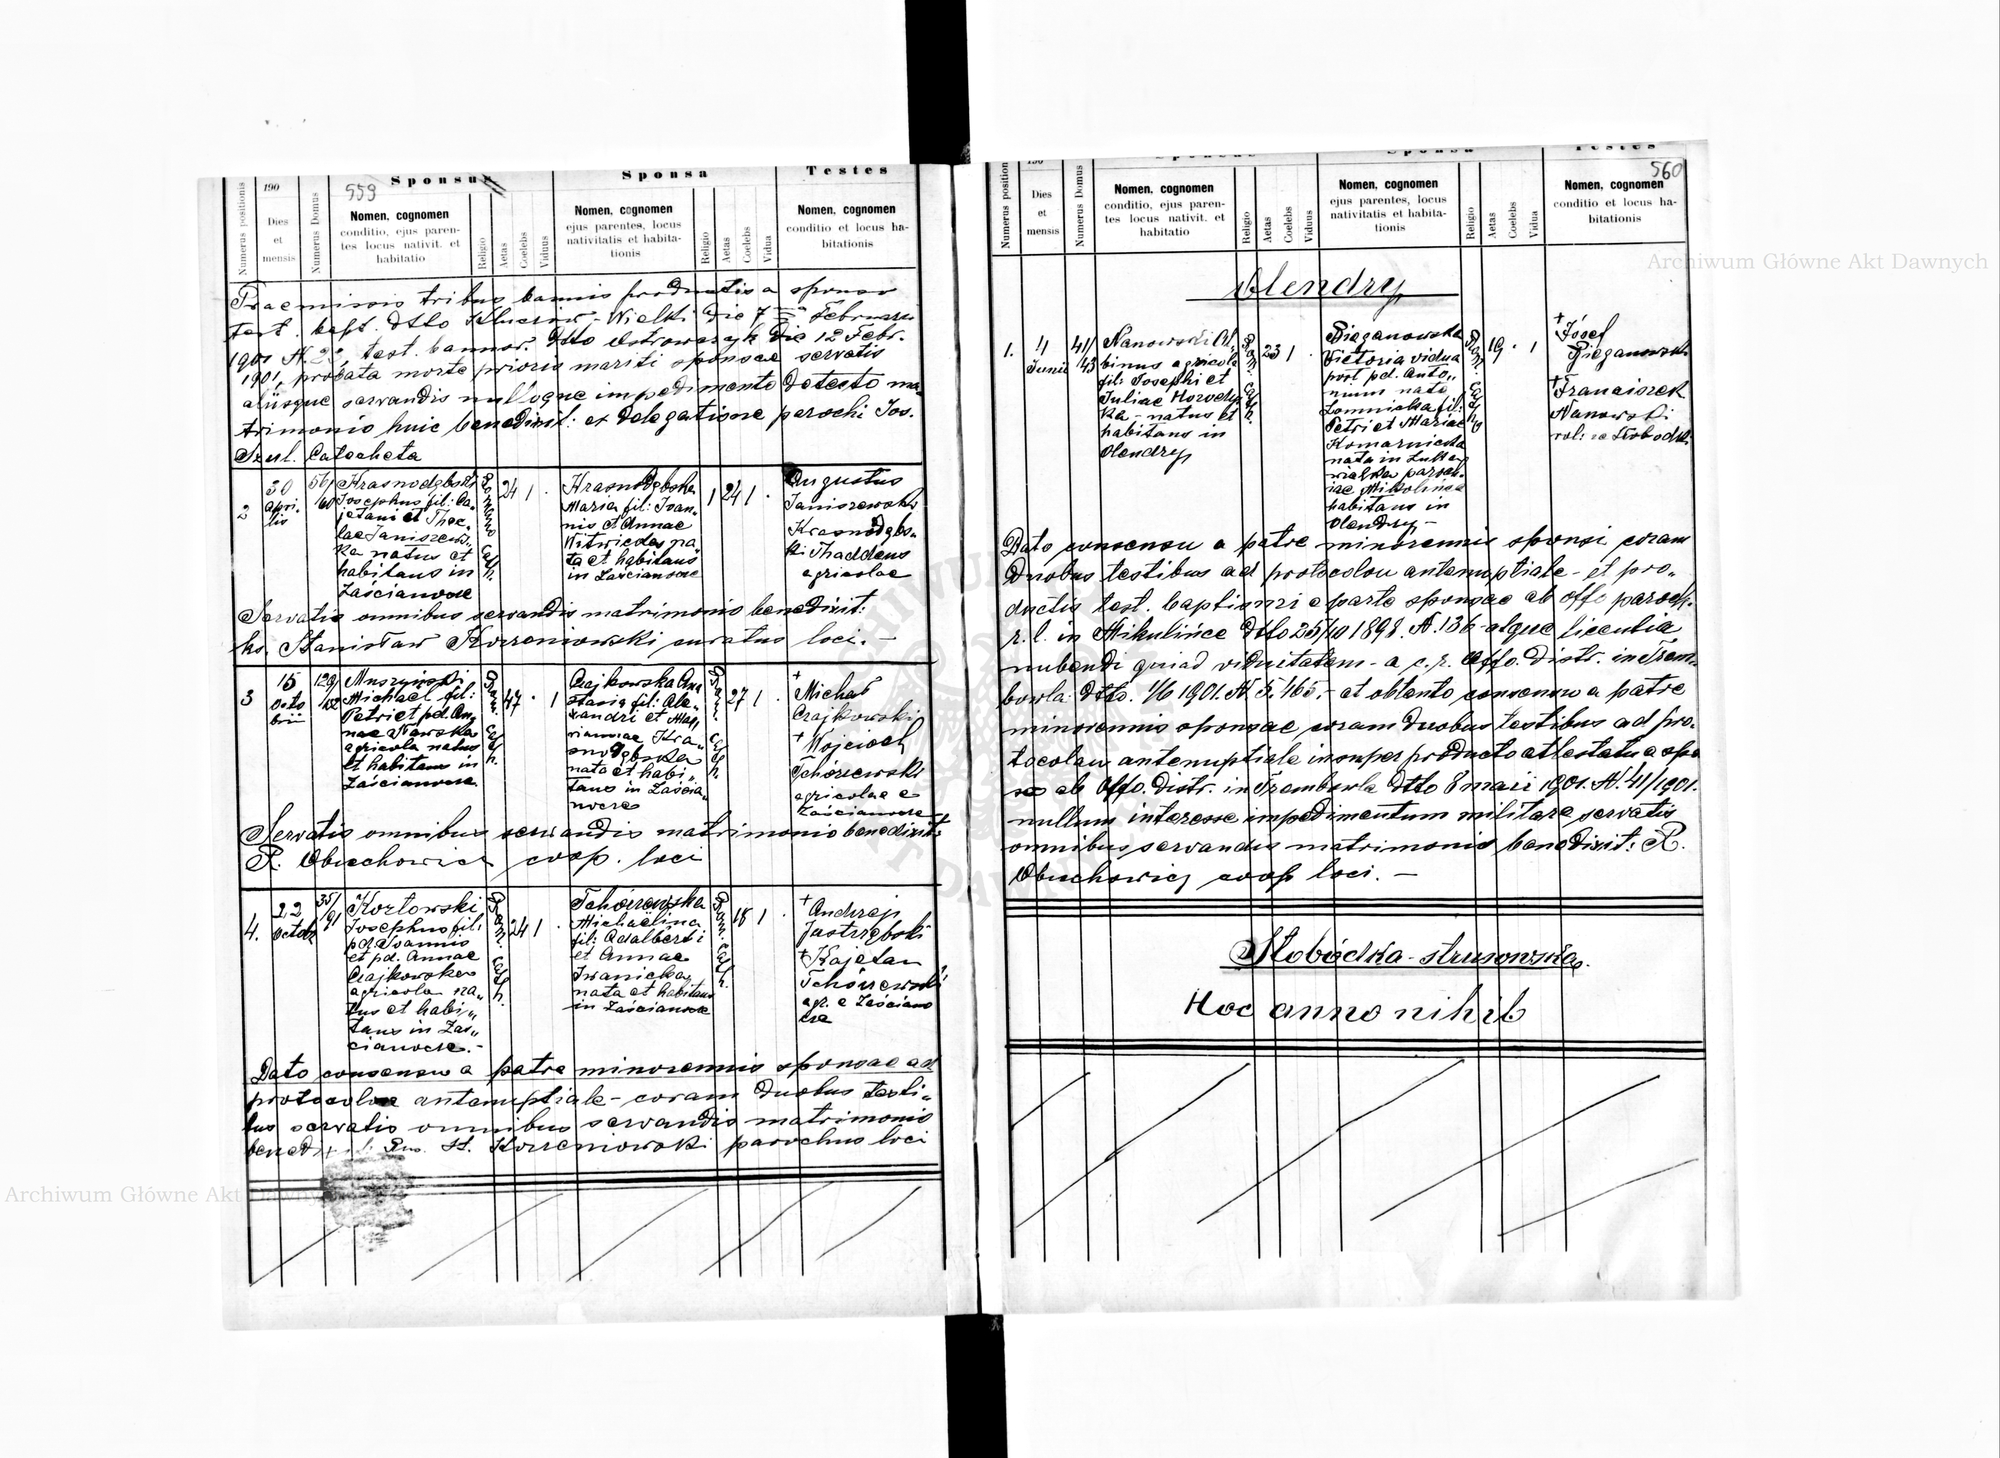 559
190
Sponsus
Sponsa
Testes
Numerus positionis
Dies
et
mensis
Numerus Domus
Nomen, cognomen
conditio, ejus paren-
tes locus nativit. et
habitatio
Religio
Aetas
Coelebs
Viduus
Nomen, cognomen
ejus parentes, locus
nativitatis et habita-
tionis
Religio
Aetas
Coelebs
Vidua
Nomen, cognomen
conditio et locus ha-
bitationis
Praemissis tribus bannis productis a sponso
test. bapt. dtto Kluczow-Wielki die 7 Februarii
1901 N. 22, test. bannor. dtto Ostrowczyk die 12 Febr.
1901, probata morte prioris mariti sponsae servatis
aliisque servandis nulloque impedimento detecto ma-
trimonio huic benedixit: ex delegatione parochi Jos.
Szul. Catecheta
2
30
Apri-
lis
56/
60
Krasnodębski
Josephus fil: Ca-
jetani et Thec-
lae Janiszews-
ka natus et
habitans in
Zaścianocze
Rom. Cath.
24
1
.
Krasnodębska
Maria fil: Joan-
nis et Annae
Witwicka na-
ta et habitans
in Zaścianocze
1
24
1
.
Augustus
Janiszewski
Krasnodębs-
ki Thaddeus
agricolae
Servatis omnibus servandis matrimonio benedixit:
ks. Stanisław Korzeniowski curatus loci. —
3
15
Octo
bris
129/
Muszyński
Michael fil:
Petri et pd. An-
nae Nawska
agricola natus
et habitans in
Zaścianocze
Rom. Cath.
47
.
1
Czajkowska Ana
stasia fil: Ale-
xandri et Mar-
riannae Kra-
snodębska
nata et habi-
tans in Zaścia-
nocze
Rom. Cath.
27
1
+
Michał
Czajkowski
+ Wojciech
Tchórzewski
agricolae e
Zaścianocze
Servatis omnibus servandis matrimonio benedixit:
R. Obuchowicz coop. loci
4.
22
Octob
35/
91
Kozłowski
Josephus fil:
pd. Joannis
et pd. Annae
Czajkowska
agricola na-
tus et habi-
tans in Zaś-
cianocze. -
Rom. Cath.
24
1
Tchórzewska
Michaëlina
fil: Adalberti
et Annae
Iwanicka
nata et habitans
in Zaścianocze
Rom. Cath.
18
1
.
+ Andrzej
Jastrzębski
+ Kajetan
Tchórzewski
agr. e Zaściano
cze
Dato consensu a patre minorennis sponsae ad
protocolon antenuptiale - coram duobus testi-
bus servatis omnibus servandis matrimonio
St. Korzeniowski parochus loci
560
190
Sponsus
Sponsa
Testes
Numerus position
Dies
et
mensis
Numerus Domus
Nomen, cognomen
conditio, ejus paren-
tes locus nativit. et
habitatio
Religio
Aetas
Coelebs
Viduus
Nomen, cognomen
ejus parentes, locus
nativitatis et habita-
tionis
Religio
Aetas
Coelebs
Vidua
Nomen, cognomen
conditio et locus ha-
bitationis
Olendry
1.
4
Junii
41/
43
Nanowski Al-
binus agricola
fil: Josephi et
Juliae Horodys
ka - natus et
habitans in
Olendry
Rom. Cath.
23
1
.
Bieganowska
Victoria vidua
post pd. Anto-
nium nata
Łomnicka fil:
Petri et Mariae
Komarnicka
nata in
paroch-
iae Mikulińce
habitans in
Olendry -
Rom. Cath.
19
.
1
+ Józef
Bieganowski
+ Franciszek
Nanowski
Dato consensu a patre minorennis sponsi coram
duobus testibus ad protocolon antenuptiale - et pro-
ductis test. baptismi e parte sponsae ab offo paroch.
r. l. in Mikulińce dtto 25/10 1898. N. 136 - atque licentia
nubendi quoad viduitatem - a c. r. Offo. Distr. in Trem-
bowla dtto. 1/6 1901. N. 5.465, - et obtento consensu a patre
minorennis sponsae, coram duobus testibus ad pro-
tocolon antenuptiale insuper producto attestatu a spon
so ab Offo. Distr. in Trembowla dtto 8 maii 1901. N. 41/1901.
nullum interesse impedimentum militare servatis
omnibus servandis matrimonio benedixit: R.
Obuchowicz coop loci. —
Słobódka-strusowska.
Hoc anno nihil
Archiwum Główne Akt Dawnych
Archiwum Główne Akt Dawnych